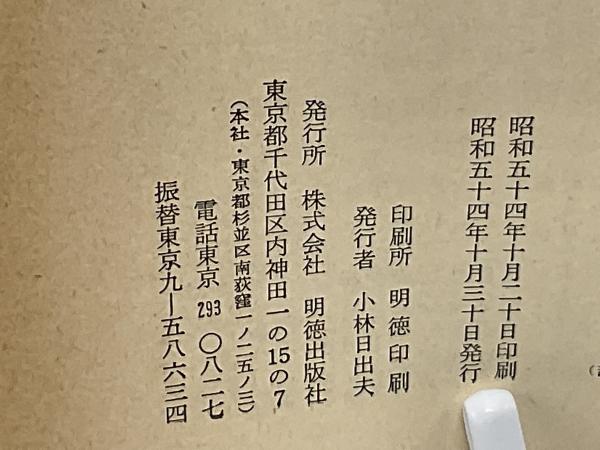 昭和五十四年十月二十日印刷
昭和五十四年十月三十日発行
印刷所 明徳印刷
発行者 小林日出夫
発行所 株式会社 明徳出版社
東京都千代田区内神田一の15の7
(本社・東京都杉並区南荻窪一ノ二五ノ三)
電話東京 293 〇八二七
振替東京九―五八六三四